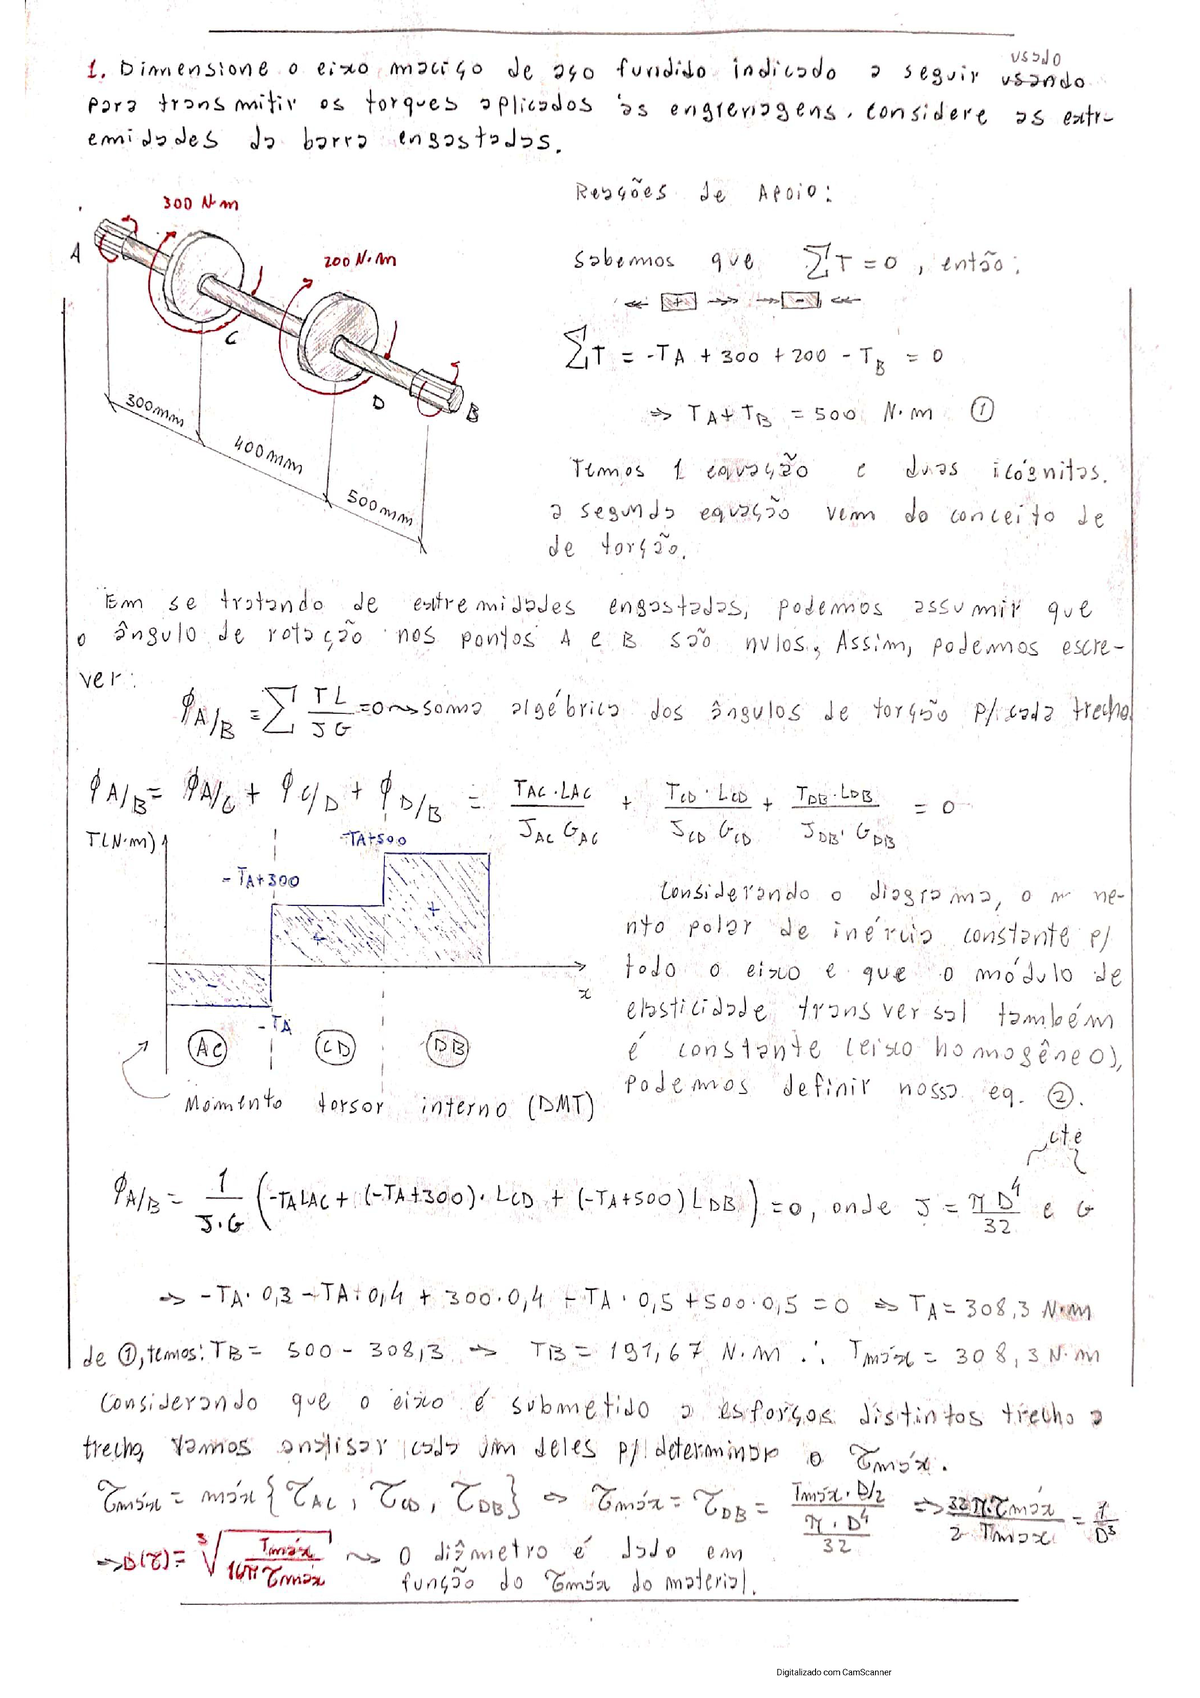 usado
1. Dimensione o eixo maciço de aço fundido indicado a seguir usando
para transmitir os torques aplicados às engrenagens. considere as extr-
emidades da barra engastadas.
Reações de Apoio:
300 N·m
A
200 N·m
C
D
B
300mm
400mm
500mm
Sabemos que ΣT = 0, então:
+ -
ΣT = -TA + 300 + 200 - TB = 0
⇒ TA + TB = 500 N·m ①
Temos 1 equação e duas icógnitas.
a segunda equação vem do conceito de
de torção.
Em se tratando de extremidades engastadas, podemos assumir que
o ângulo de rotação nos pontos A e B são nulos. Assim, podemos escre-
ver:
ϕA/B = Σ TL/JG = 0 ⇝ soma algébrica dos ângulos de torção p/ cada trecho.
ϕA/B = ϕA/C + ϕC/D + ϕD/B = TAC·LAC/JAC GAC + TCD·LCD/JCD GCD + TDB·LDB/JDB·GDB = 0
T(N·m)
-TA+500
-TA+300
+
+
-
x
-TA
AC CD DB
Momento torsor interno (DMT)
Considerando o diagrama, o m ne-
nto polar de inércia constante p/
todo o eixo e que o módulo de
elasticidade transversal também
é constante (eixo homogêneo),
podemos definir nossa eq. ②.
cte
ϕA/B = 1/J·G (-TALAC + (-TA+300)·LCD + (-TA+500)LDB) = 0, onde J = πD⁴/32 e G
⇒ -TA·0,3 - TA·0,4 + 300·0,4 - TA·0,5 + 500·0,5 = 0 ⇒ TA = 308,3 N·m
de ①, temos: TB = 500 - 308,3 ⇒ TB = 191,67 N·m ∴ Tmáx = 308,3 N·m
Considerando que o eixo é submetido a esforços distintos trecho a
trecho, vamos analisar cada um deles p/ determinar o τmáx.
τmáx = máx{τAC, τCD, τDB} ⇒ τmáx = τDB = Tmáx·D/2 / π·D⁴/32 ⇒ 32π·τmáx/2 Tmax = 1/D³
⇒ D(τ) = ³√(Tmáx/16π τmáx) ⇝ O diâmetro é dado em
função do τmáx do material.
Digitalizado com CamScanner